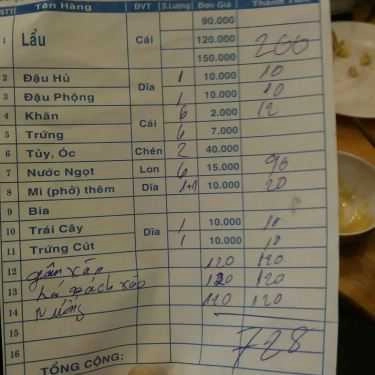 STT Tên Hàng ĐVT S.Lượng Đơn Giá Thành Tiền
90.000
1 Lẩu Cái 120.000 200
150.000
2 Đậu Hủ Dĩa 1 10.000 10
3 Đậu Phộng 1 10.000 10
4 Khăn Cái 6 2.000 12
5 Trứng 6 7.000
6 Tủy, Óc Chén 2 40.000
7 Nước Ngọt Lon 6 15.000 90
8 Mì (phở) thêm Dĩa 1+1 10.000 20
9 Bia
10 Trái Cây Dĩa 1 10.000 10
11 Trứng Cút 1 10.000 10
12 gân xào 120 120
13 xào 120 120
14 nướng 120 120
15
16 728
TỔNG CỘNG: